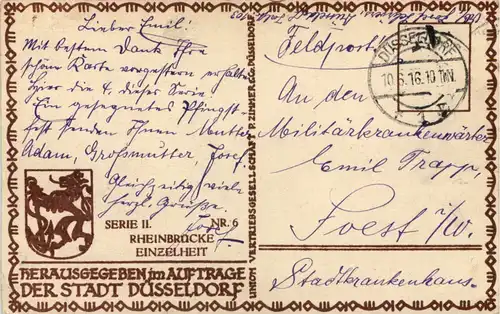 Lieber Emil!
Mit bestem Dank Ihre
schöne Karte vorgestern erhalten
Hier die 4. dieser Serie
Ein gesegnetes Pfingst-
fest senden Ihnen Mutter
Adam, Großmutter, Josef.
Gleichzeitig viele
herzl. Grüße
SERIE II. NR. 6
RHEINBRÜCKE
EINZELHEIT
HERAUSGEGEBEN im AUFTRAGE
DER STADT DÜSSELDORF
UNION VERTRIEBSGESELLSCHAFT
DÜSSELDORF
Feldpost
DÜSSELDORF
10.6.16.10
An den
Militärkrankenwärter
Emil Trapp,
Soest i/W.
Stadtkrankenhaus.